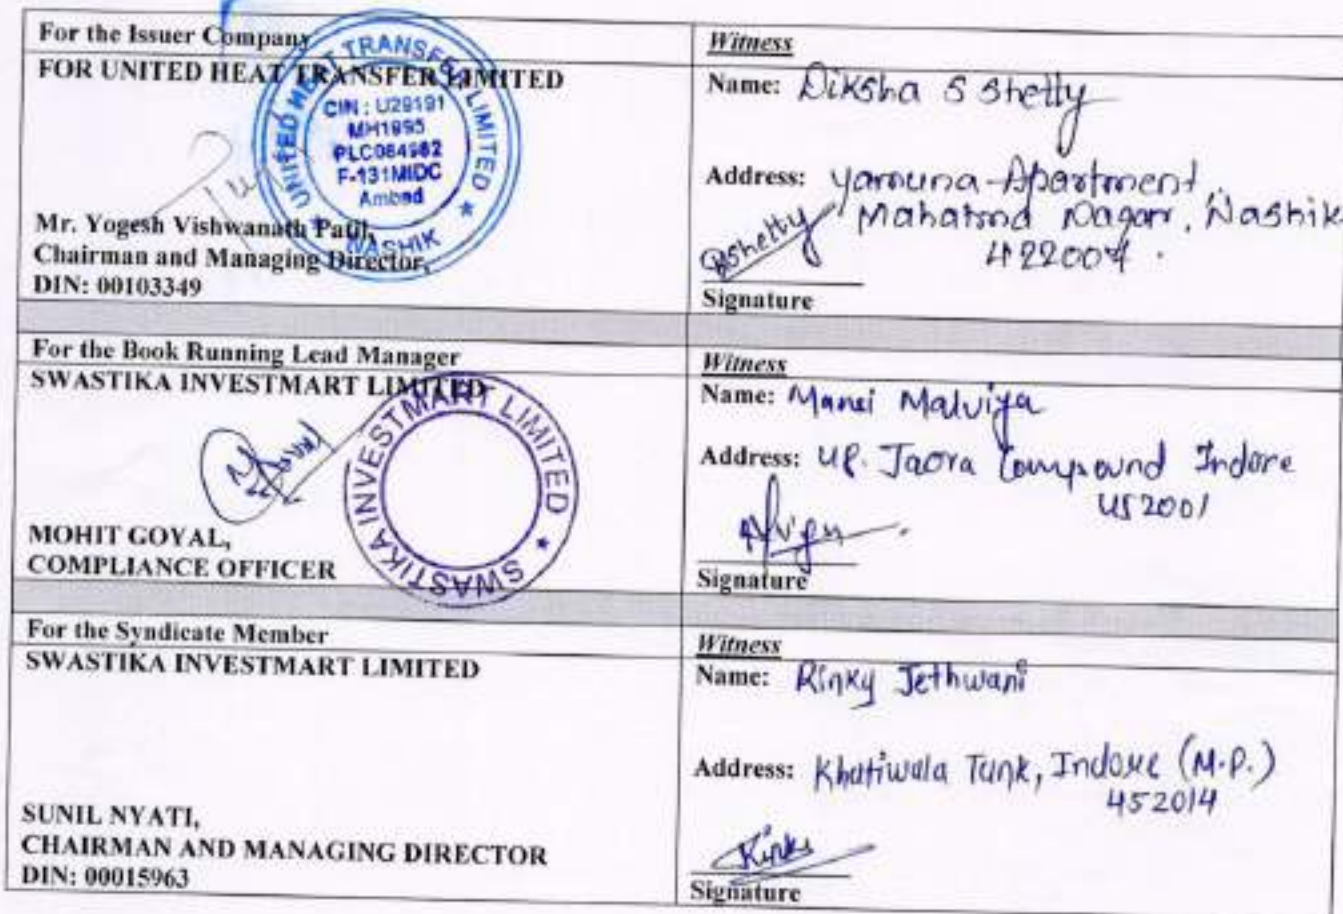 For the Issuer Company
FOR UNITED HEAT TRANSFER LIMITED
UNITED HEAT TRANSFER LIMITED
CIN : U29191
MH1995
PLC084982
F-131MIDC
Ambad
NASHIK
Mr. Yogesh Vishwanath Patil,
Chairman and Managing Director,
DIN: 00103349
Witness
Name: Diksha S Shetty
Address: Yamuna-Apartment,
Mahatma Nagar, Nashik
422007.
DShetty
Signature
For the Book Running Lead Manager
SWASTIKA INVESTMART LIMITED
SWASTIKA INVESTMART LIMITED
MOHIT GOYAL,
COMPLIANCE OFFICER
Witness
Name: Mansi Malviya
Address: 48. Jaora Compound Indore
452001
Signature
For the Syndicate Member
SWASTIKA INVESTMART LIMITED
SUNIL NYATI,
CHAIRMAN AND MANAGING DIRECTOR
DIN: 00015963
Witness
Name: Rinky Jethwani
Address: Khatiwala Tank, Indore (M.P.)
452014
Signature